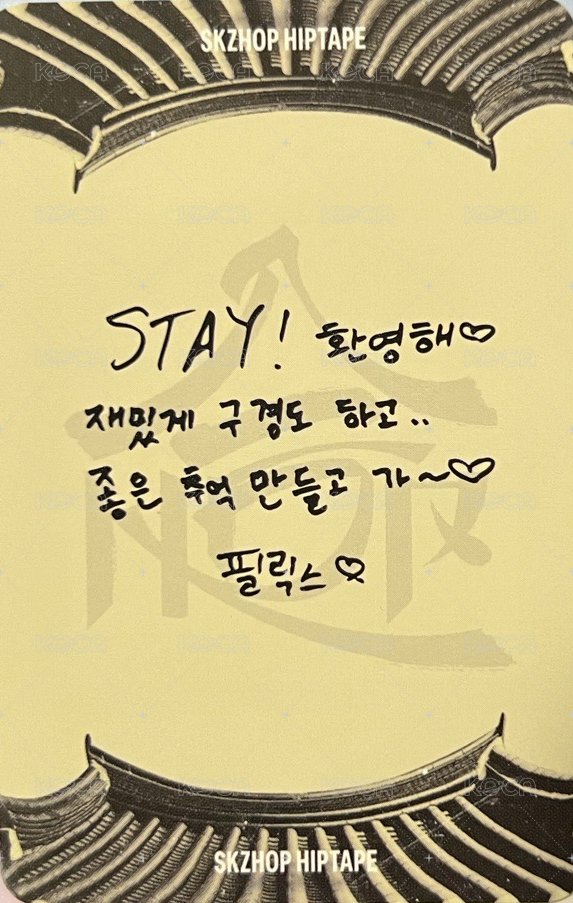 SKZHOP HIPTAPE
STAY! 환영해♡
재밌게 구경도 하고..
좋은 추억 만들고 가~♡
필릭스♡
SKZHOP HIPTAPE